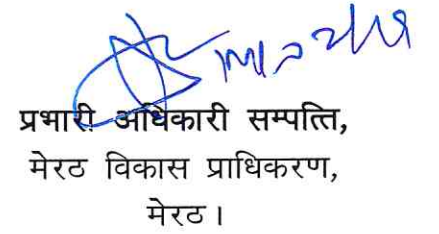 प्रभारी अधिकारी सम्पत्ति,
मेरठ विकास प्राधिकरण,
मेरठ।